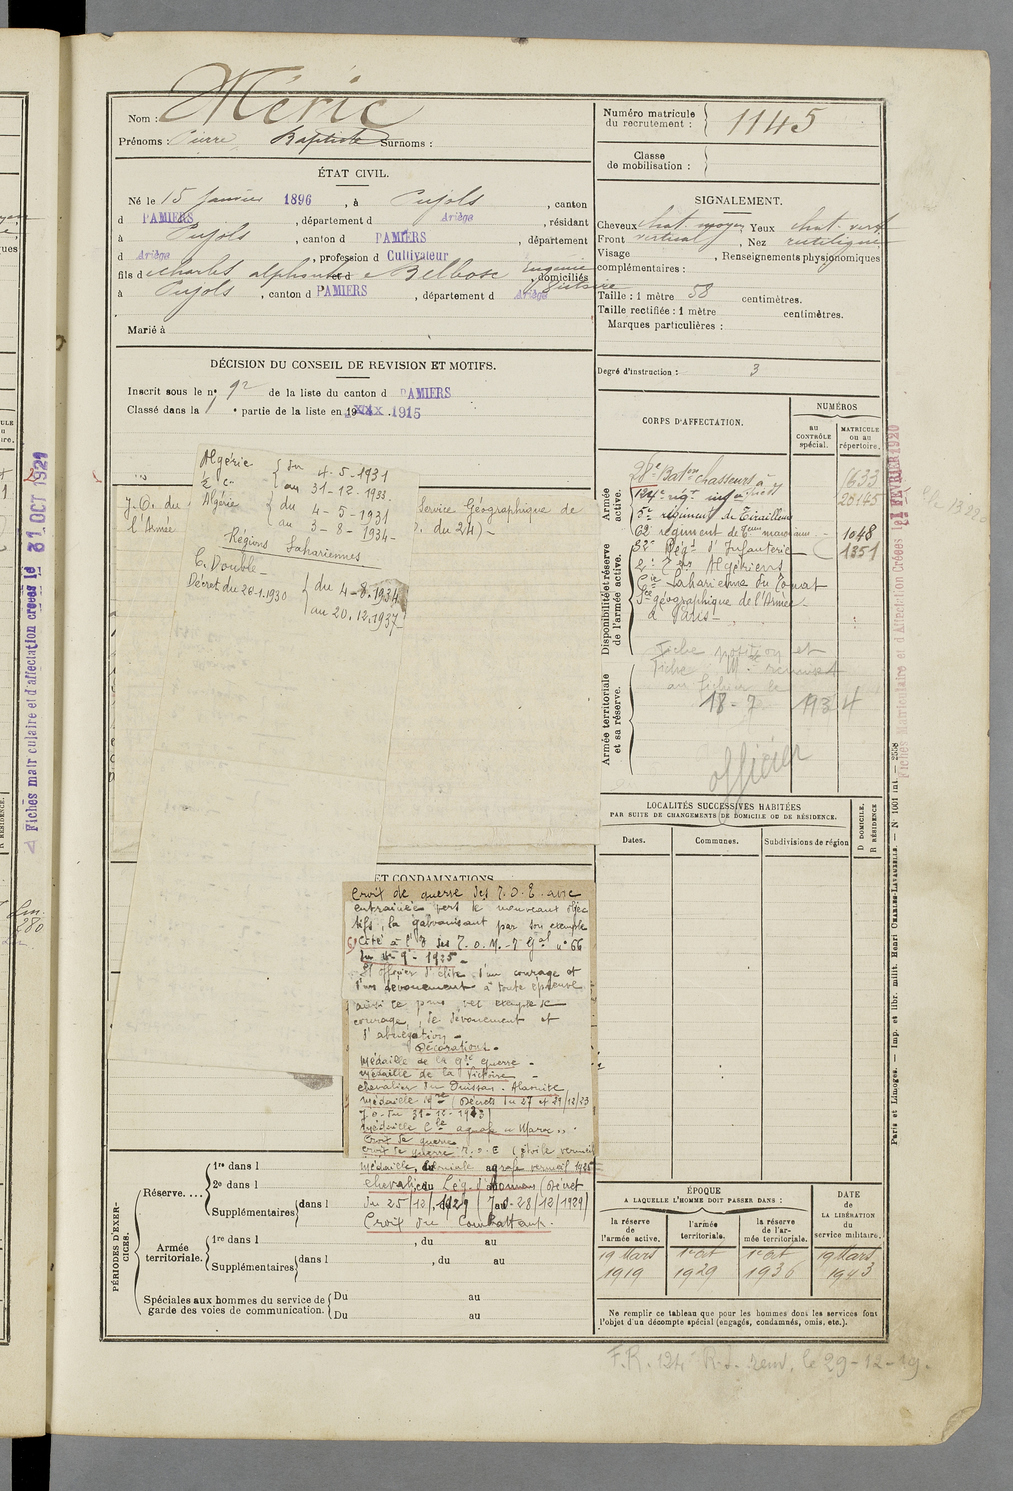 Nom : Méric
Prénoms : Pierre Baptiste Surnoms :
ÉTAT CIVIL.
Né le 15 Janvier 1896, à Pujols, canton
d PAMIERS, département d Ariège, résidant
à Pujols, canton d PAMIERS, département
d Ariège, profession d Cultivateur
fils de Charles alphonse et d e Belbosc Eugénie
Victoire, domiciliés
à Pujols, canton d PAMIERS, département d Ariège
Marié à
DÉCISION DU CONSEIL DE REVISION ET MOTIFS.
Inscrit sous le no 92 de la liste du canton d PAMIERS
Classé dans la 1 e partie de la liste en 19 1915
Algérie { du 4-5-1931
au 31-12-1933.
Algérie { du 4-5-1931
au 3-8-1934-
Régions Sahariennes
C. Double -
Décret du 28-1.1930 { du 4-8.1934
au 20.12.1937-
J.O. du
Service Géographique de
l'Armée
. du 24)-
ET CONDAMNATIONS
Croix de guerre des T.O.E. avec
entrainée vers le nouveaux objec
tifs, la galvanisant par son exemple
Cité à l'O des T.O.M. - O Gal no 66
du 4-9-1925-
"Off officier d'élite d'un courage et
d'un dévouement à toute épreuve
courage, de dévouement et
d'abnégation -
Décorations -
Médaille de la Gde Guerre -
Médaille de la Victoire -
chevalier du Ouissam-Alaouite
(Décrets du 27 et 29/12/23
J.O. du 31-12-1923)
Médaille Cle agrafe "Maroc".
Croix de guerre
Croix de guerre T.O.E (étoile vermeil
médaille coloniale agrafe vermeil 1925
chevalier Lég. d'Honneur (Décret
du 25/12/1929 (J.O. 28/12/1929)
Croix du Combattant.
PÉRIODES D'EXERCICES.
Réserve. ... 1re dans l
2e dans l
Supplémentaires dans l
Armée territoriale. 1re dans l , du au
Supplémentaires dans l , du au
Spéciales aux hommes du service de garde des voies de communication. Du au
Du au
Numéro matricule du recrutement : 1145
Classe de mobilisation :
SIGNALEMENT.
Cheveux chat. moyen Yeux chat. vert
Front vertical, Nez rectiligne
Visage , Renseignements physiognomiques
complémentaires :
Taille : 1 mètre 58 centimètres.
Taille rectifiée : 1 mètre centimètres.
Marques particulières :
Degré d'instruction : 3
CORPS D'AFFECTATION.
NUMÉROS
au CONTRÔLE spécial.
MATRICULE ou au répertoire.
Disponibilité et réserve de l'armée active.
Armée active.
28e Baton Chasseurs à 1633
124e rigt infanterie 20145
5e régiment de Tirailleurs
62e régiment de Tirs marocains - 1048
32e Régt d'Infanterie 1351
2e Tirs Algériens
Cie Saharienne du Touat
Sce géographique de l'Armée -
à Paris -
Armée territoriale et sa réserve.
Fiche position et
Fiche Mle remises
au fichier le
18-7 1934
officier
LOCALITÉS SUCCESSIVES HABITÉES
PAR SUITE DE CHANGEMENTS DE DOMICILE OU DE RÉSIDENCE.
Dates.
Communes.
Subdivisions de région
D DOMICILE.
R RÉSIDENCE
ÉPOQUE
A LAQUELLE L'HOMME DOIT PASSER DANS :
la réserve de l'armée active.
l'armée territoriale.
la réserve de l'armée territoriale.
DATE de LA LIBÉRATION du service militaire.
19 Mars 1919
1er Oct 1929
1er Oct 1936
19 Mars 1943
Ne remplir ce tableau que pour les hommes dont les services font
l'objet d'un décompte spécial (engagés, condamnés, omis, etc.).
F.R. 124e R.I. renv. le 29-12-19.
Paris et Limoges. — Imp. et libr. milit. Henri CHARLES-LAVAUZELLE. — N° 1001 int. — 2558
Fiches Matriculaire et d'Affectation Créées le FEVRIER 1920
Fiches matriculaire et d'affectation créées le 31 OCT 1921